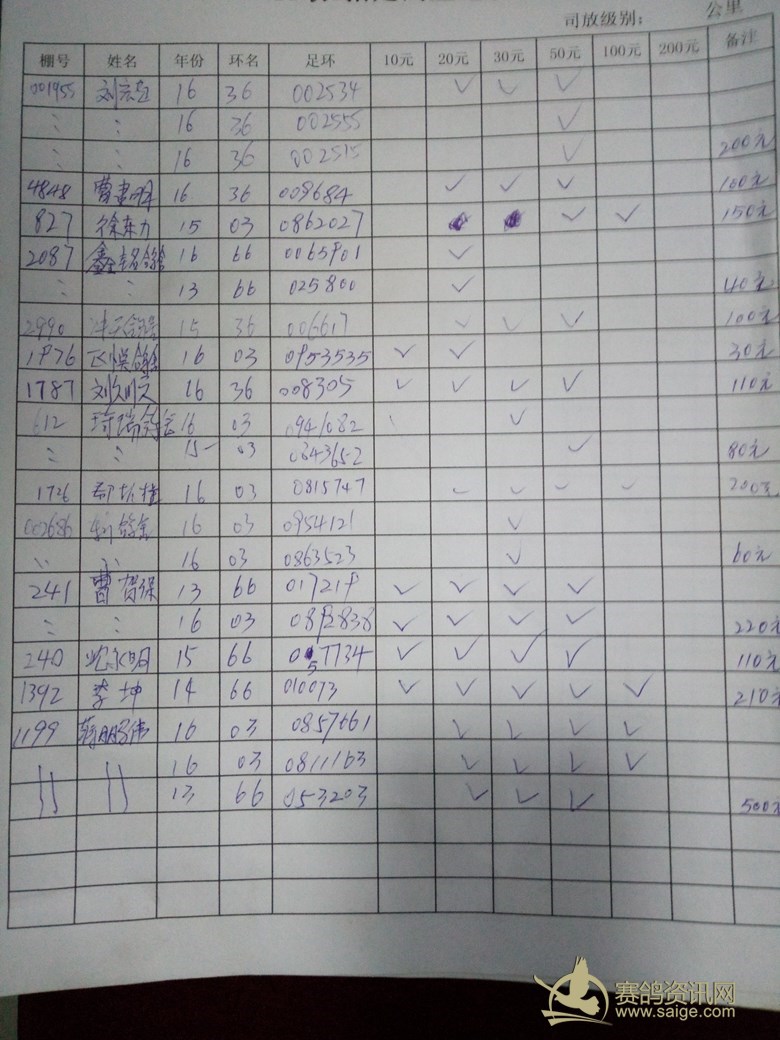 司放级别： 公里
棚号 姓名 年份 环名 足环 10元 20元 30元 50元 100元 200元 备注
001955 刘 16 36 002534 ✓ ✓ ✓
〃 〃 16 36 002555 ✓
〃 〃 16 36 002515 ✓ 200元
4848 曹 16 36 009684 ✓ ✓ ✓ 100元
827 徐东力 15 03 0862027 ✓ ✓ 150元
2087 16 66 0065901 ✓
〃 〃 13 66 025800 ✓ 40元
2990 15 36 006617 ✓ ✓ ✓ 100元
1976 16 03 0953535 ✓ ✓ 30元
1787 刘 16 36 008305 ✓ ✓ ✓ ✓ 110元
612 琦瑞 16 03 0941082 ✓
〃 〃 15 03 0843652 ✓ 80元
1726 16 03 0815747 ✓ ✓ ✓ ✓ 200元
002686 16 03 0954121 ✓
〃 〃 16 03 0863523 ✓ 60元
241 曹贺保 13 66 017219 ✓ ✓ ✓ ✓
〃 〃 16 03 0892838 ✓ ✓ ✓ ✓ 220元
240 明 15 66 057734 ✓ ✓ ✓ ✓ 110元
1392 李坤 14 66 010073 ✓ ✓ ✓ ✓ ✓ 210元
1199 蒋朋伟 16 03 0857661 ✓ ✓ ✓ ✓
〃 〃 16 03 0811163 ✓ ✓ ✓ ✓
13 66 053203 ✓ ✓ ✓ 500元
赛鸽资讯网
www.saige.com